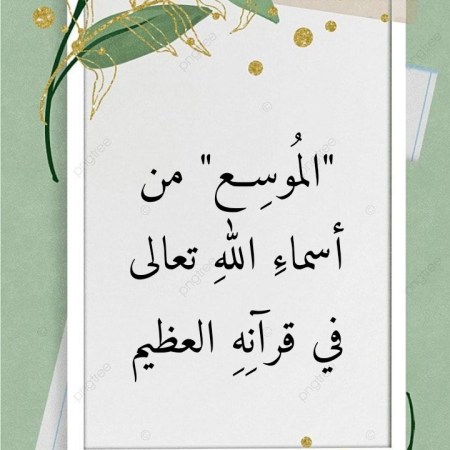 "المُوسِع" من
أسماءِ اللهِ تعالى
في قرآنِهِ العظيم
pngtree